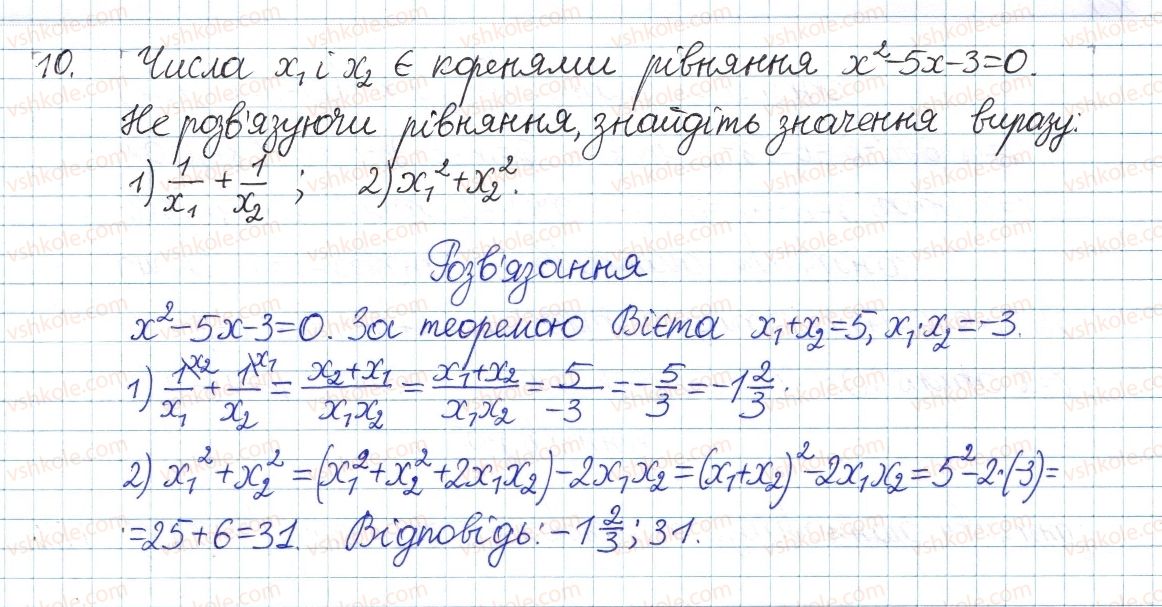 10. Числа x₁ і x₂ є коренями рівняння x²-5x-3=0.
Не розв'язуючи рівняння, знайдіть значення виразу:
1) 1/x₁ + 1/x₂ ; 2) x₁²+x₂².
Розв'язання
x²-5x-3=0. За теоремою Вієта x₁+x₂=5, x₁·x₂=-3.
1) 1\x₂/x₁ + 1\x₁/x₂ = (x₂+x₁)/(x₁x₂) = (x₁+x₂)/(x₁x₂) = 5/-3 = -5/3 = -1 2/3.
2) x₁²+x₂²=(x₁²+x₂²+2x₁x₂)-2x₁x₂=(x₁+x₂)²-2x₁x₂=5²-2·(-3)=
=25+6=31. Відповідь: -1 2/3; 31.
vshkole.com